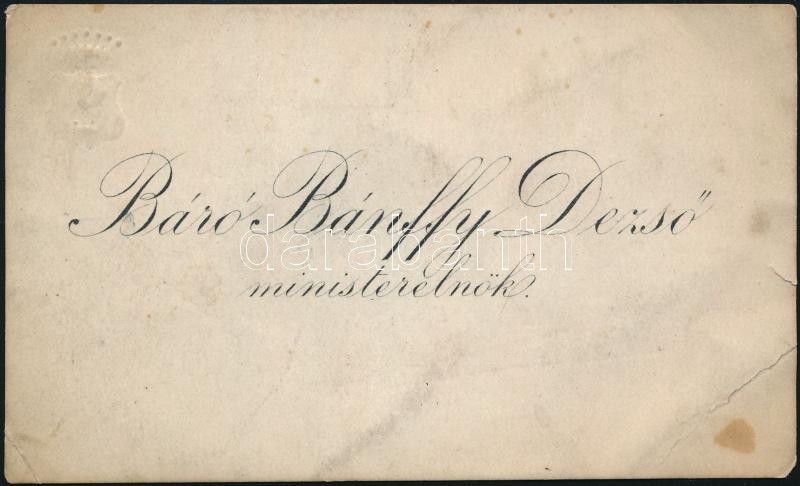 Báró Bánffy Dezső
darabanth
ministerelnök.